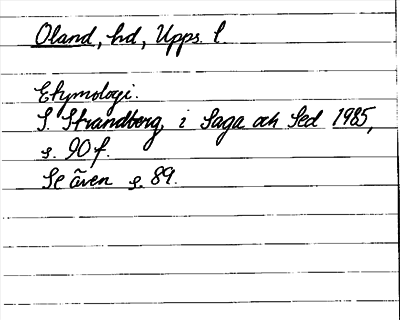 Oland, hd, Upps. l.
Etymologi.
S. Strandberg, i Saga och Sed 1985,
s. 90 f.
Se även s. 89.